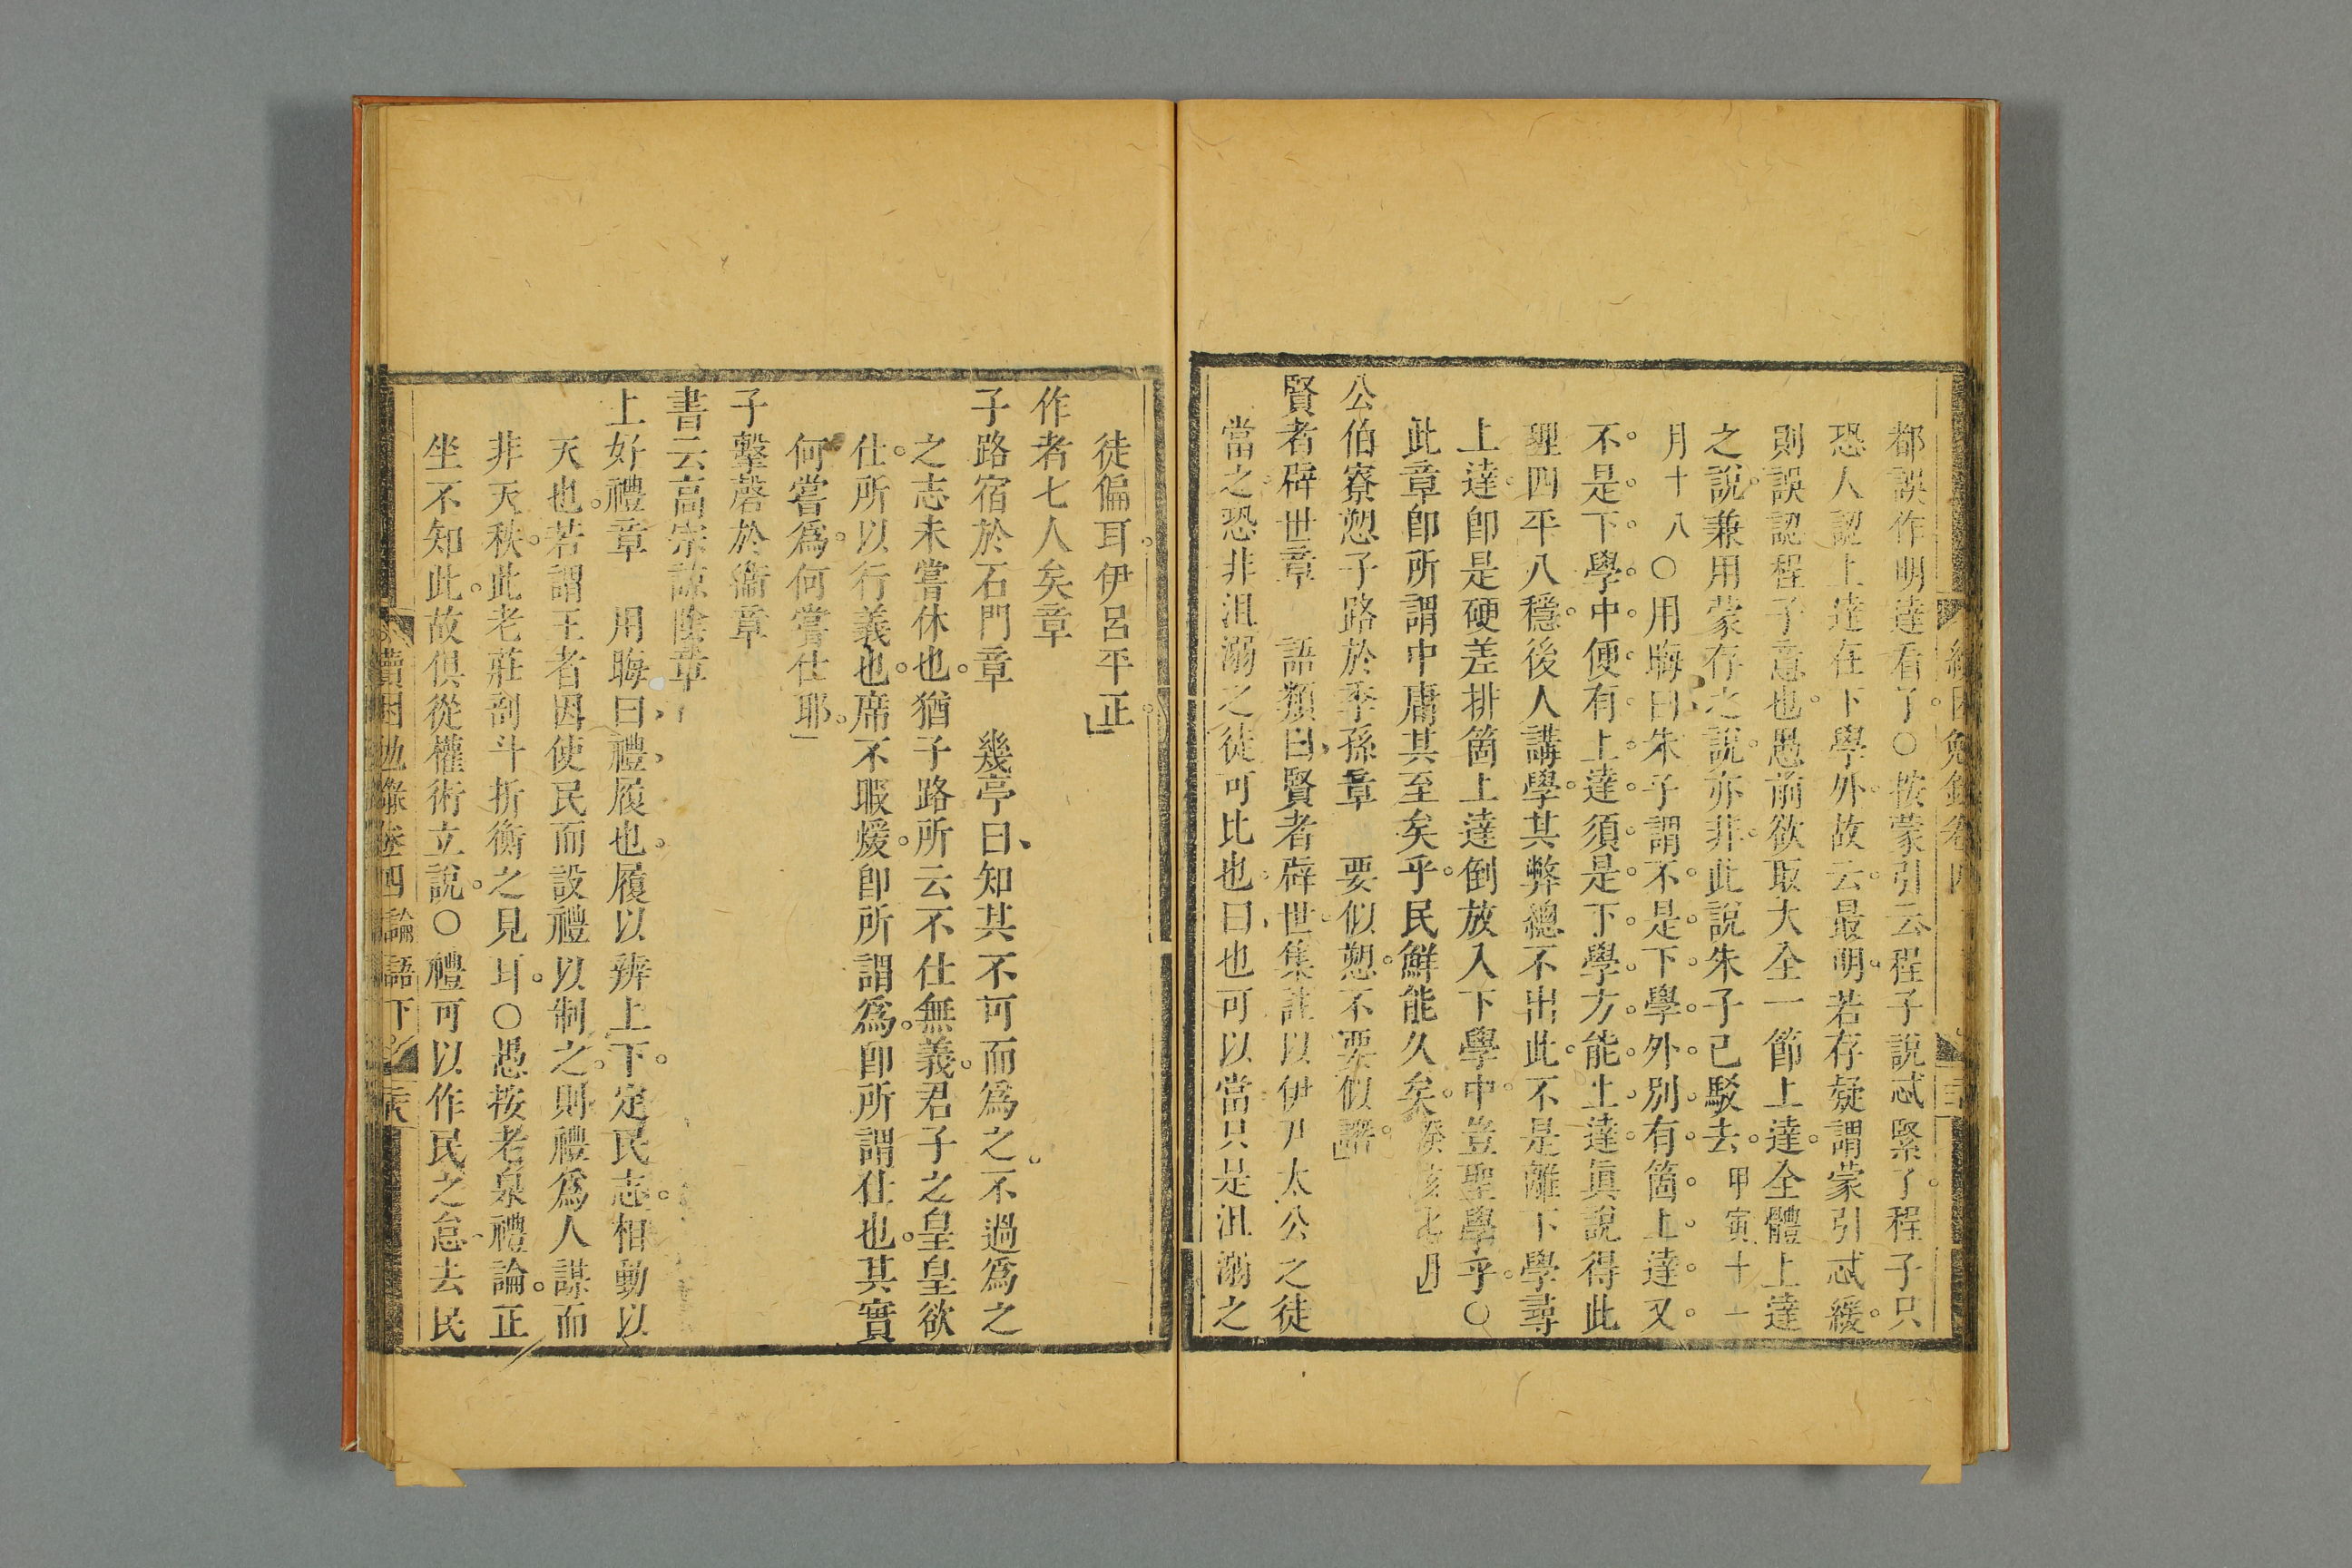 都誤作明達看了○按蒙引云程子說忒緊了程子只
恐人認上達在下學外故云最明若存疑謂蒙引忒緩
則誤認程子意也愚前欲取大全一節上達全體上達
之說兼用蒙存之說亦非此說朱子已駁去甲寅十一
月十八○用晦曰朱子謂不是下學外別有箇上達又
不是下學中便有上達須是下學方能上達眞說得此
理四平八穩後人講學其弊總不出此不是離下學尋
上達卽是硬差排箇上達倒放入下學中豈聖學乎○
此章卽所謂中庸其至矣乎民鮮能久矣
公伯寮愬子路於季孫章 要似愬不要似譖
賢者辟世章 語類曰賢者辟世集註以伊尹太公之徒
當之恐非沮溺之徒可比也曰也可以當只是沮溺之
徒偏耳伊呂平正
作者七人矣章
子路宿於石門章 幾亭曰知其不可而爲之不過爲之
之志未嘗休也猶子路所云不仕無義君子之皇皇欲
仕所以行義也席不暇煖卽所謂爲卽所謂仕也其實
何嘗爲何嘗仕耶
子擊磬於衞章
書云高宗諒陰章
上好禮章 用晦曰禮履也履以辨上下定民志相動以
天也若謂王者因使民而設禮以制之則禮爲人謀而
非天秩此老莊剖斗折衡之見耳○愚按老泉禮論正
坐不知此故俱從權術立說○禮可以作民之怠去民
續困勉錄卷四 論語下